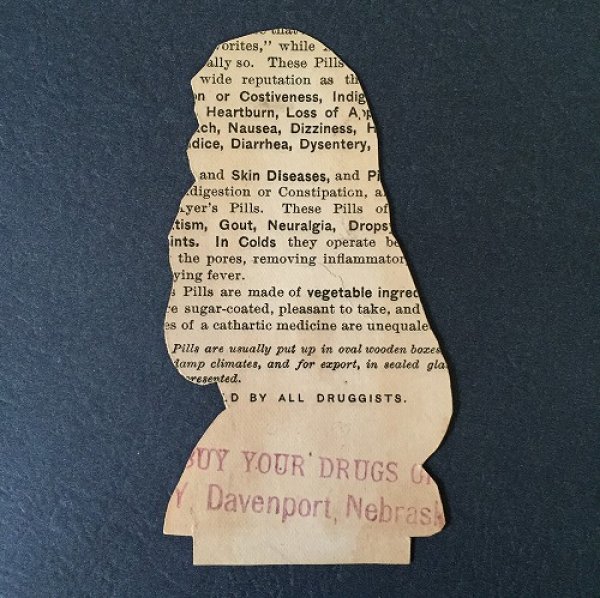 orites," while
ally so. These Pills
wide reputation as th
n or Costiveness, Indig
Heartburn, Loss of Ap
ch, Nausea, Dizziness, H
dice, Diarrhea, Dysentery,
and Skin Diseases, and Pi
digestion or Constipation, a
yer's Pills. These Pills of
tism, Gout, Neuralgia, Drops
ints. In Colds they operate be
the pores, removing inflammator
ying fever.
s Pills are made of vegetable ingred
re sugar-coated, pleasant to take, and
es of a cathartic medicine are unequale
Pills are usually put up in oval wooden boxes
damp climates, and for export, in sealed gla
presented.
D BY ALL DRUGGISTS.
BUY YOUR DRUGS O
Y, Davenport, Nebrask